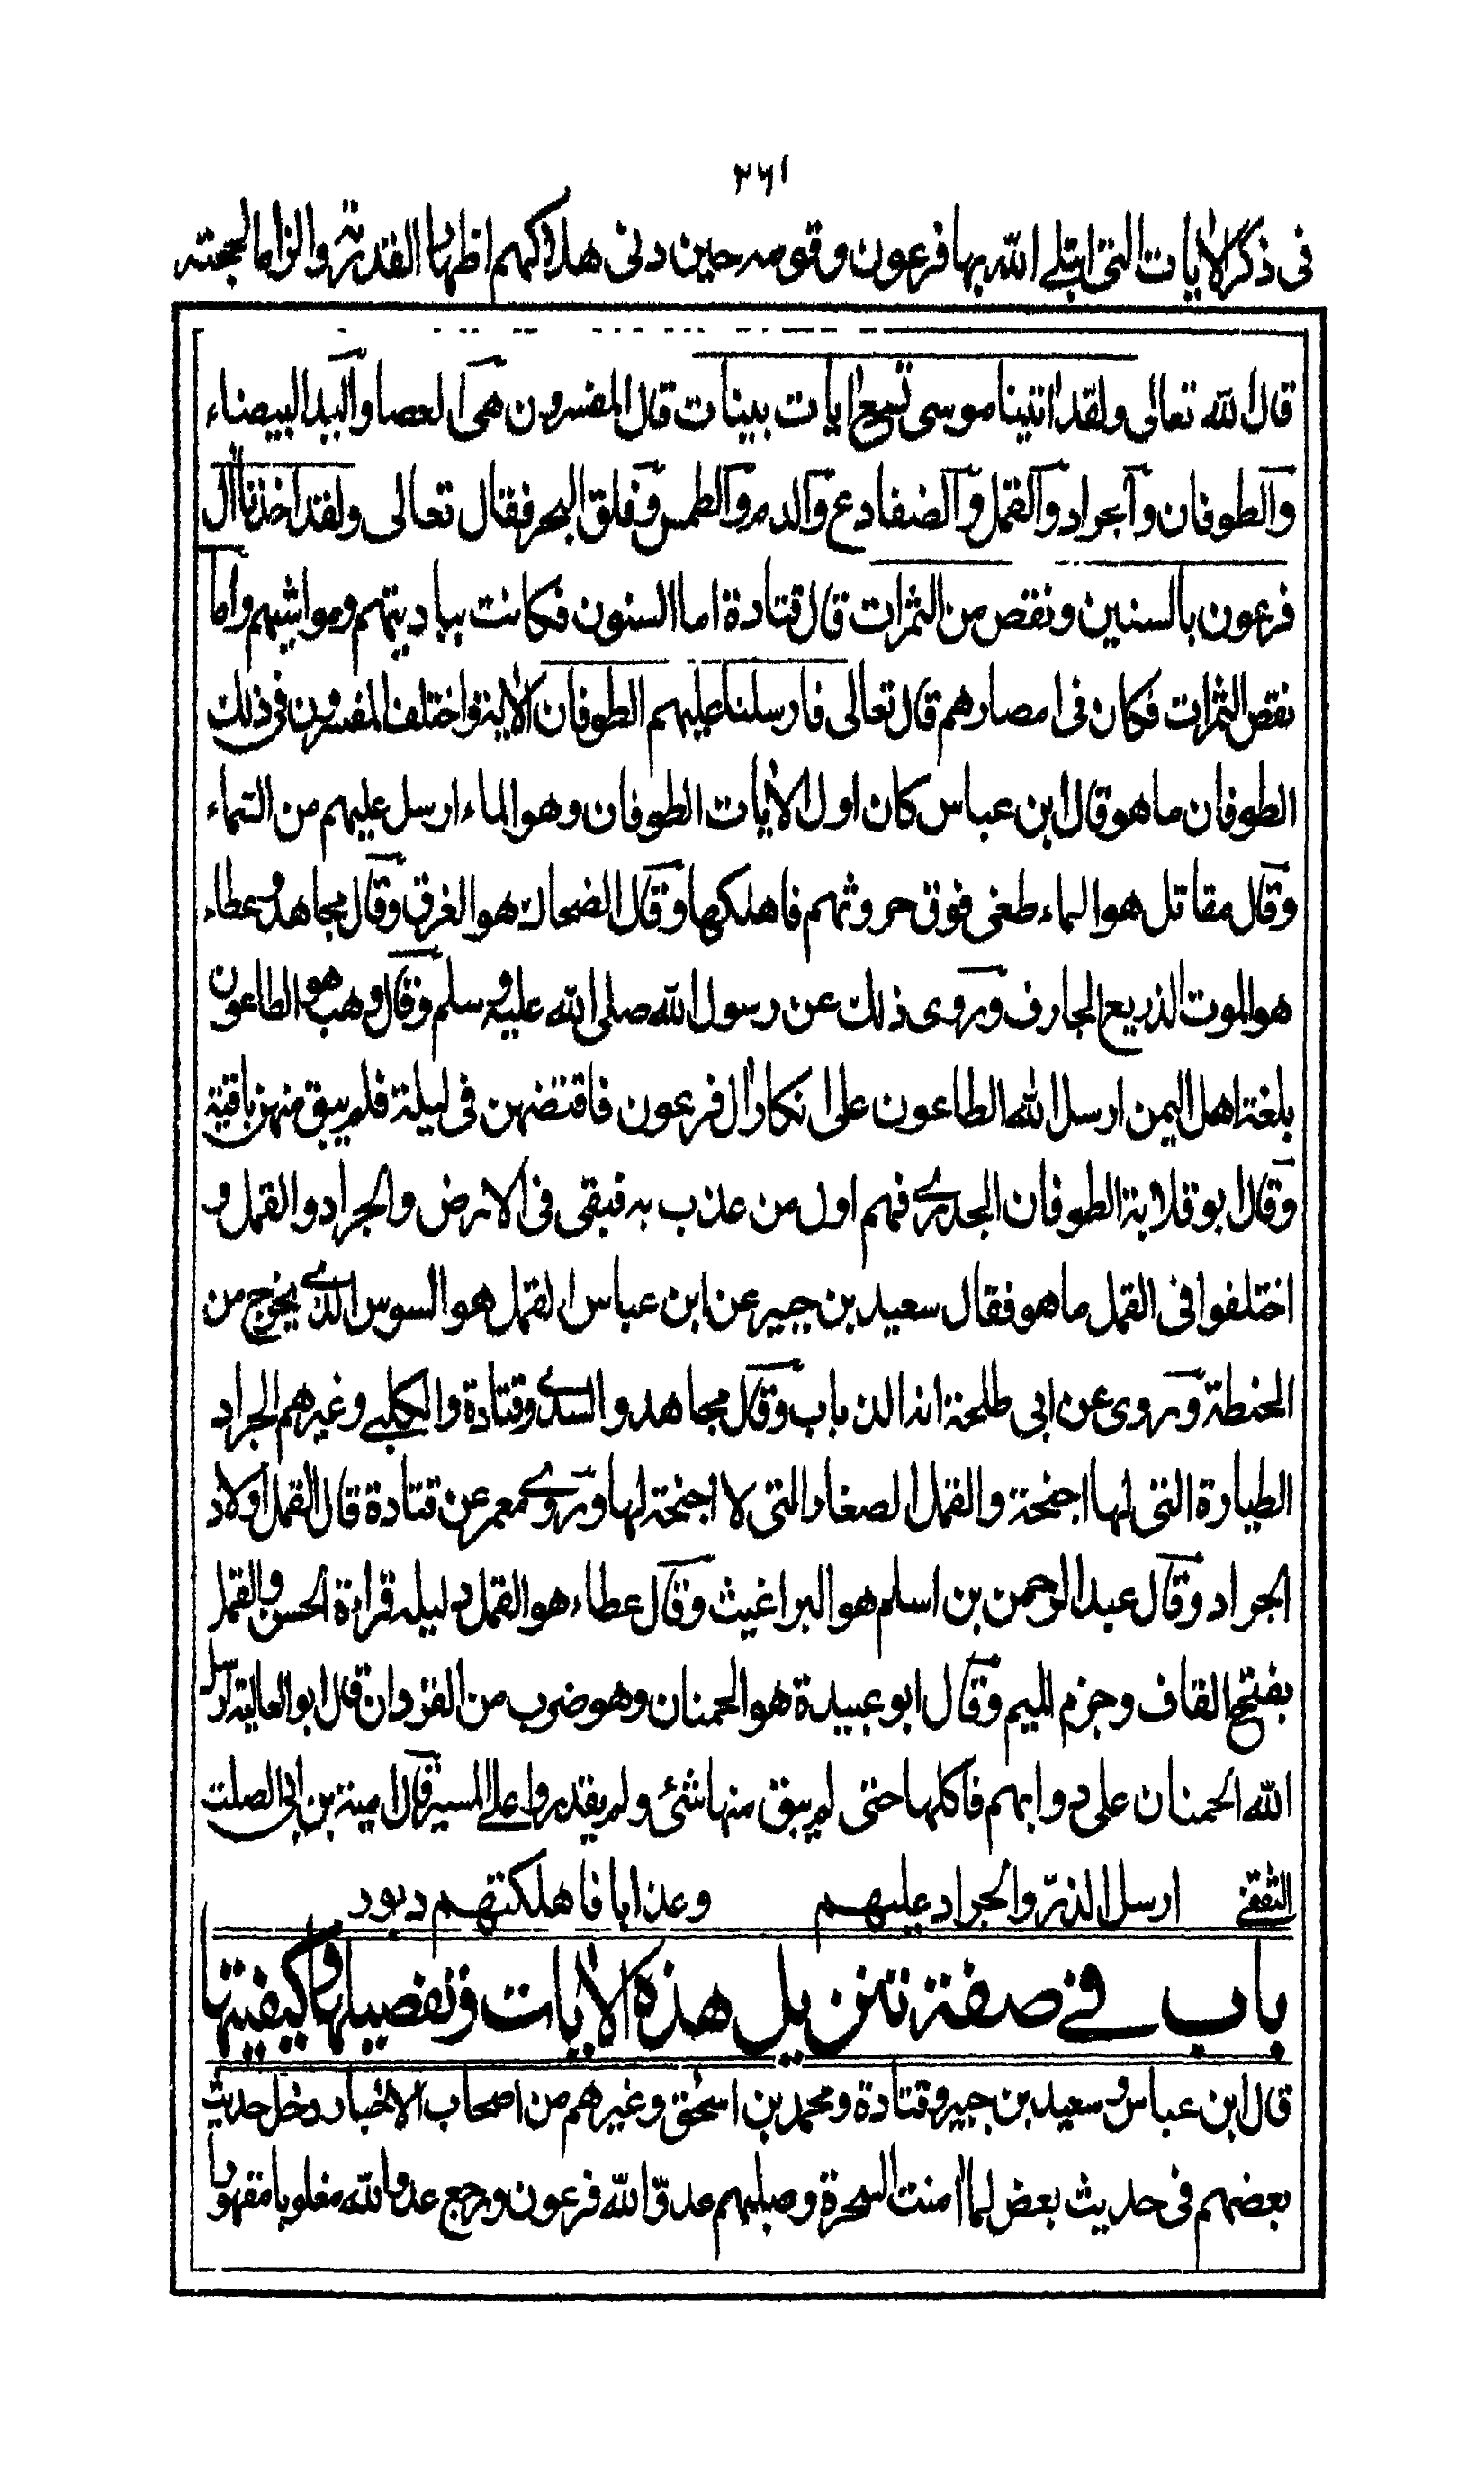 ٢٦١
فى ذكر الايات التى ابتلى الله بها فرعون وقومه حين دنى هلاكهم اظهارا لقدرته والزاما لحجته
قال الله تعالى ولقد اتينا موسى تسع ايات بينات قال المفسرون هى العصا واليد البيضاء
والطوفان والجراد والقمل والضفادع والدم والطمس وفلق البحر فقال تعالى ولقد اخذنا ال
فرعون بالسنين ونقص من الثمرات قال قتادة اما السنون فكانت بباديتهم ومواشيهم واما
نقص الثمرات فكان فى امصارهم قال تعالى فارسلنا عليهم الطوفان الاية واختلف المفسرون فى ذلك
الطوفان ما هو قال ابن عباس كان اول الايات الطوفان وهو الماء ارسل عليهم من السماء
وقال مقاتل هو الماء طغى فوق حروثهم فاهلكها وقال الضحاك هو الغرق وقال مجاهد وعطاء
هو الموت الذريع الجارف وروى ذلك عن رسول الله صلى الله عليه وسلم وقال وهب هو الطاعون
بلغة اهل اليمن ارسل الله الطاعون على ابكار ال فرعون فاقتضهن فى ليلة فلم يبق منهن باقية
وقال ابو قلابة الطوفان الجدرى فهم اول من عذب به فبقى فى الارض والجراد والقمل و
اختلفوا فى القمل ما هو فقال سعيد بن جبير عن ابن عباس القمل هو السوس الذى يخرج من
الحنطة وروى عن ابى طلحة انه الذباب وقال مجاهد والسدى وقتادة والكلبى وغيرهم الجراد
الطيارة التى لها اجنحة والقمل الصغار التى لا اجنحة لها وروى معمر عن قتادة قال القمل اولاد
الجراد وقال عبد الرحمن بن اسلم هو البراغيث وقال عطاء هو القمل دليله قراءة الحسن والقمل
بفتح القاف وجزم الميم وقال ابو عبيدة هو الحمنان وهو ضرب من القردان قال ابو العالية ارسل
الله الحمنان على دوابهم فاكلها حتى لم يبق منها شئ ولم يقدروا على المسير قال امية بن ابى الصلت
الثقفى ارسل الذر والجراد عليهم وعذابا فاهلكتهم دبور
باب فى صفة تنزيل هذه الايات وتفصيلها وكيفيتها
قال ابن عباس وسعيد بن جبير وقتادة ومحمد بن اسحق وغيرهم من اصحاب الاخبار دخل حديث
بعضهم فى حديث بعض لما امنت السحرة وصلبهم عدو الله فرعون ورجع عدو الله مغلوبا مقهورا